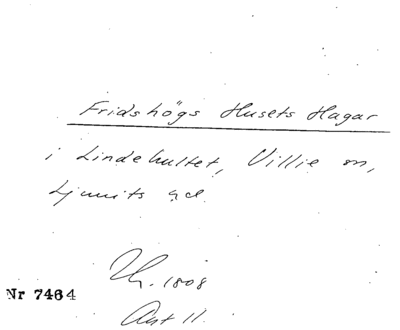 Fridshögs Husets Hagar
i Lindehultet, Villie sn,
Ljunits hd.
1808
Nr 7464
Akt 11.